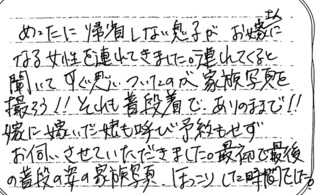 めったに帰省しない息子が、お嫁さんに
なる女性を連れてきました。連れてくると
聞いて思いついたのが家族写真を
撮ろう!!それも普段着で、ありのままで!!
嫁に嫁いだ娘も呼び予約もせず
お伺いさせていただきました。最初で最後
の普段の姿の家族写真、ほっこりした時間でした。